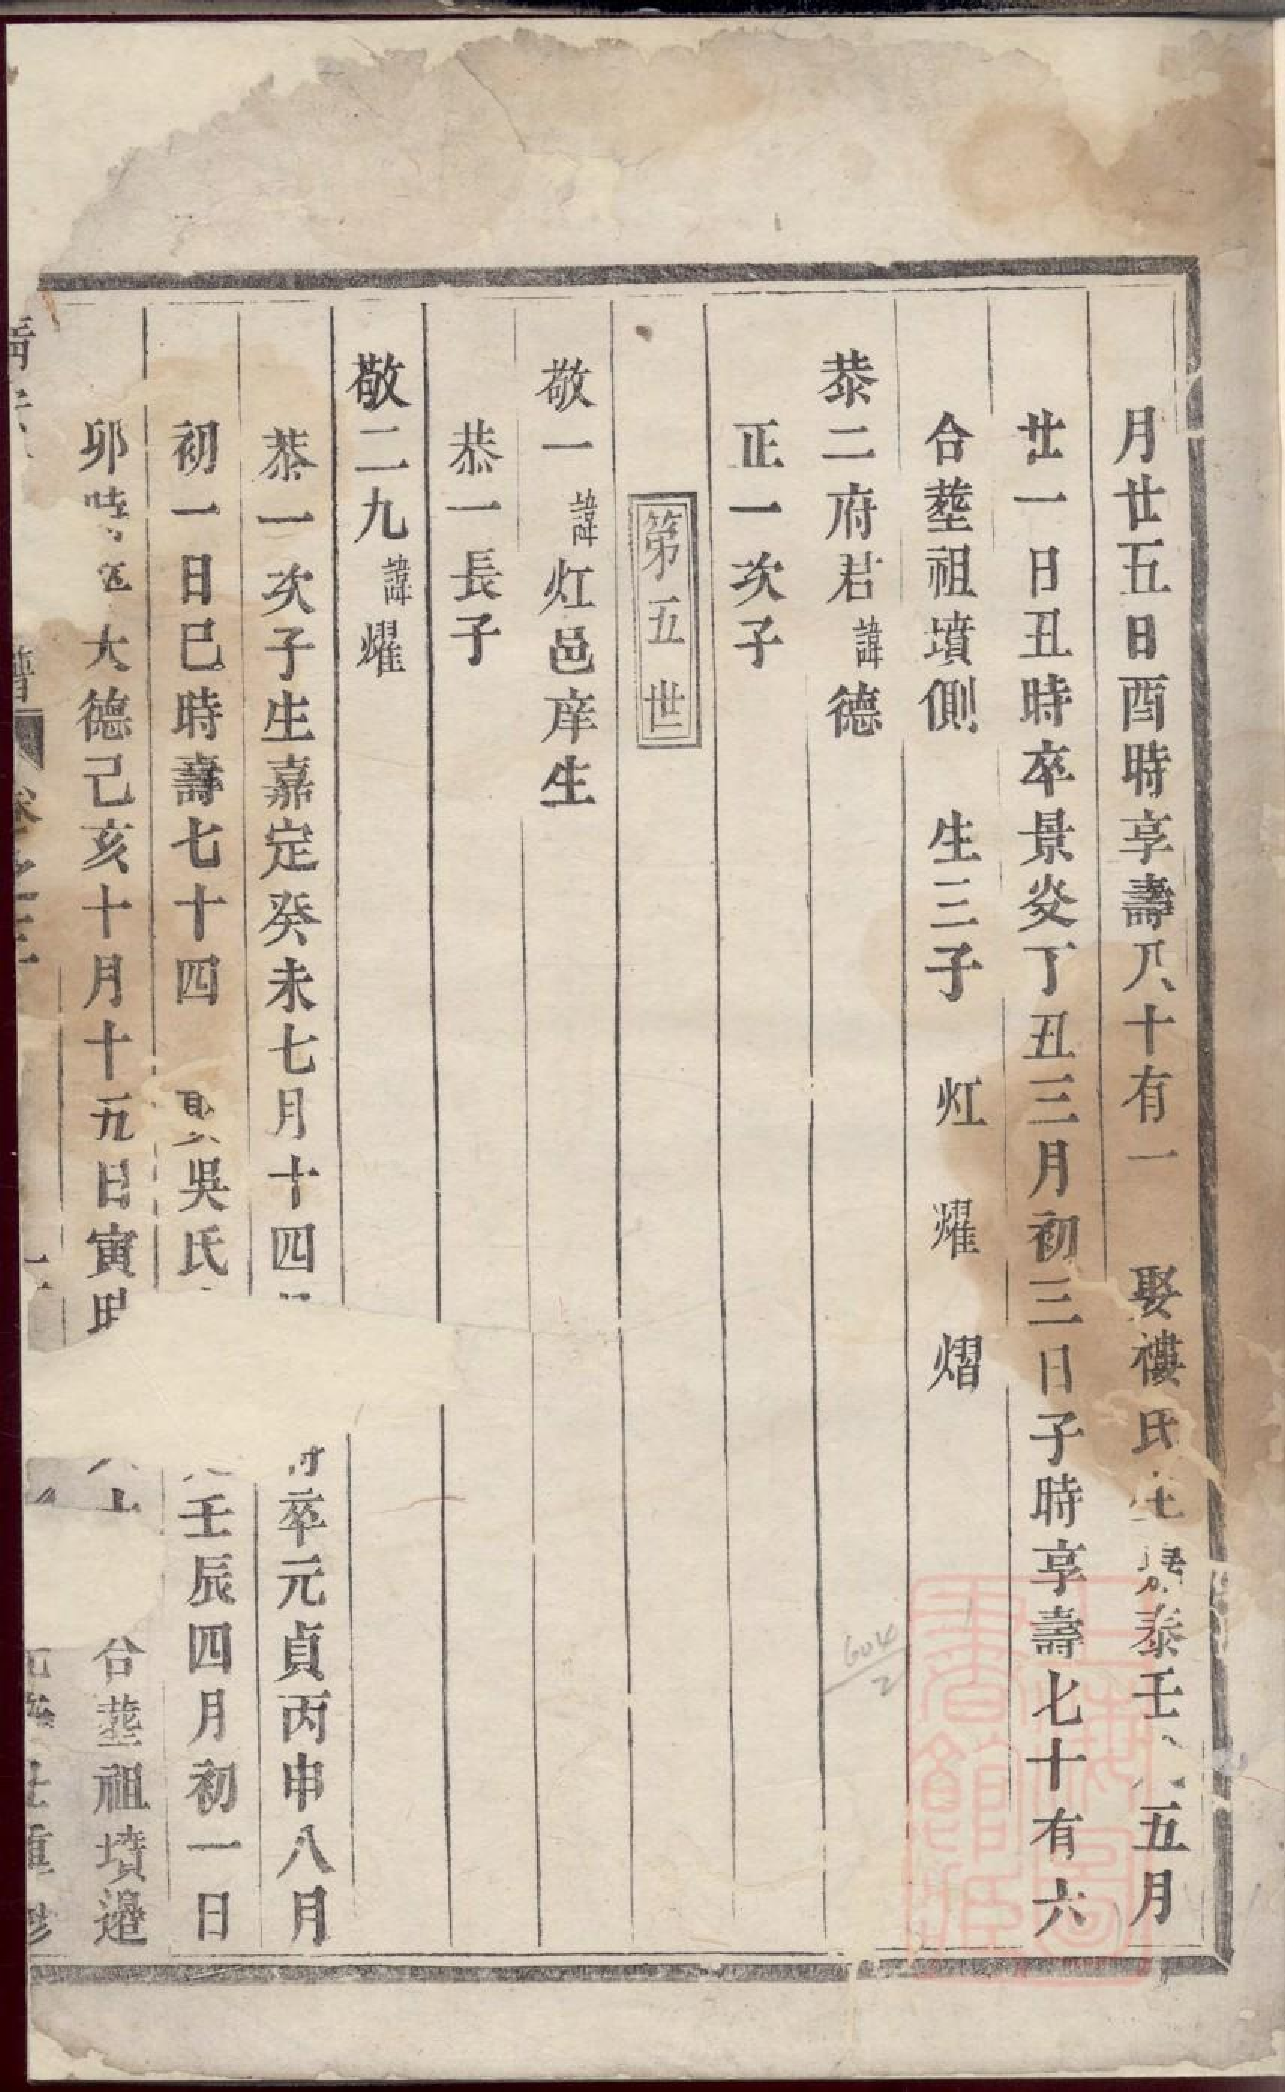 月廿五日酉時享壽八十有一　娶褸氏生嘉泰壬　五月
廿一日丑時卒景炎丁丑三月初三日子時享壽七十有六
合塟祖墳側　生三子　灴　燿　熠
恭二府君諱德
正一次子
第五世
敬一諱灴邑庠生
恭一長子
敬二九諱燿
恭一次子生嘉定癸未七月十四　卒元貞丙申八月
初一日巳時壽七十四　娶吳氏　壬辰四月初一日
卯時　大德己亥十月十五日寅時　合塟祖墳邉
譜　卷之二　重修
604/2
上海圖書館藏